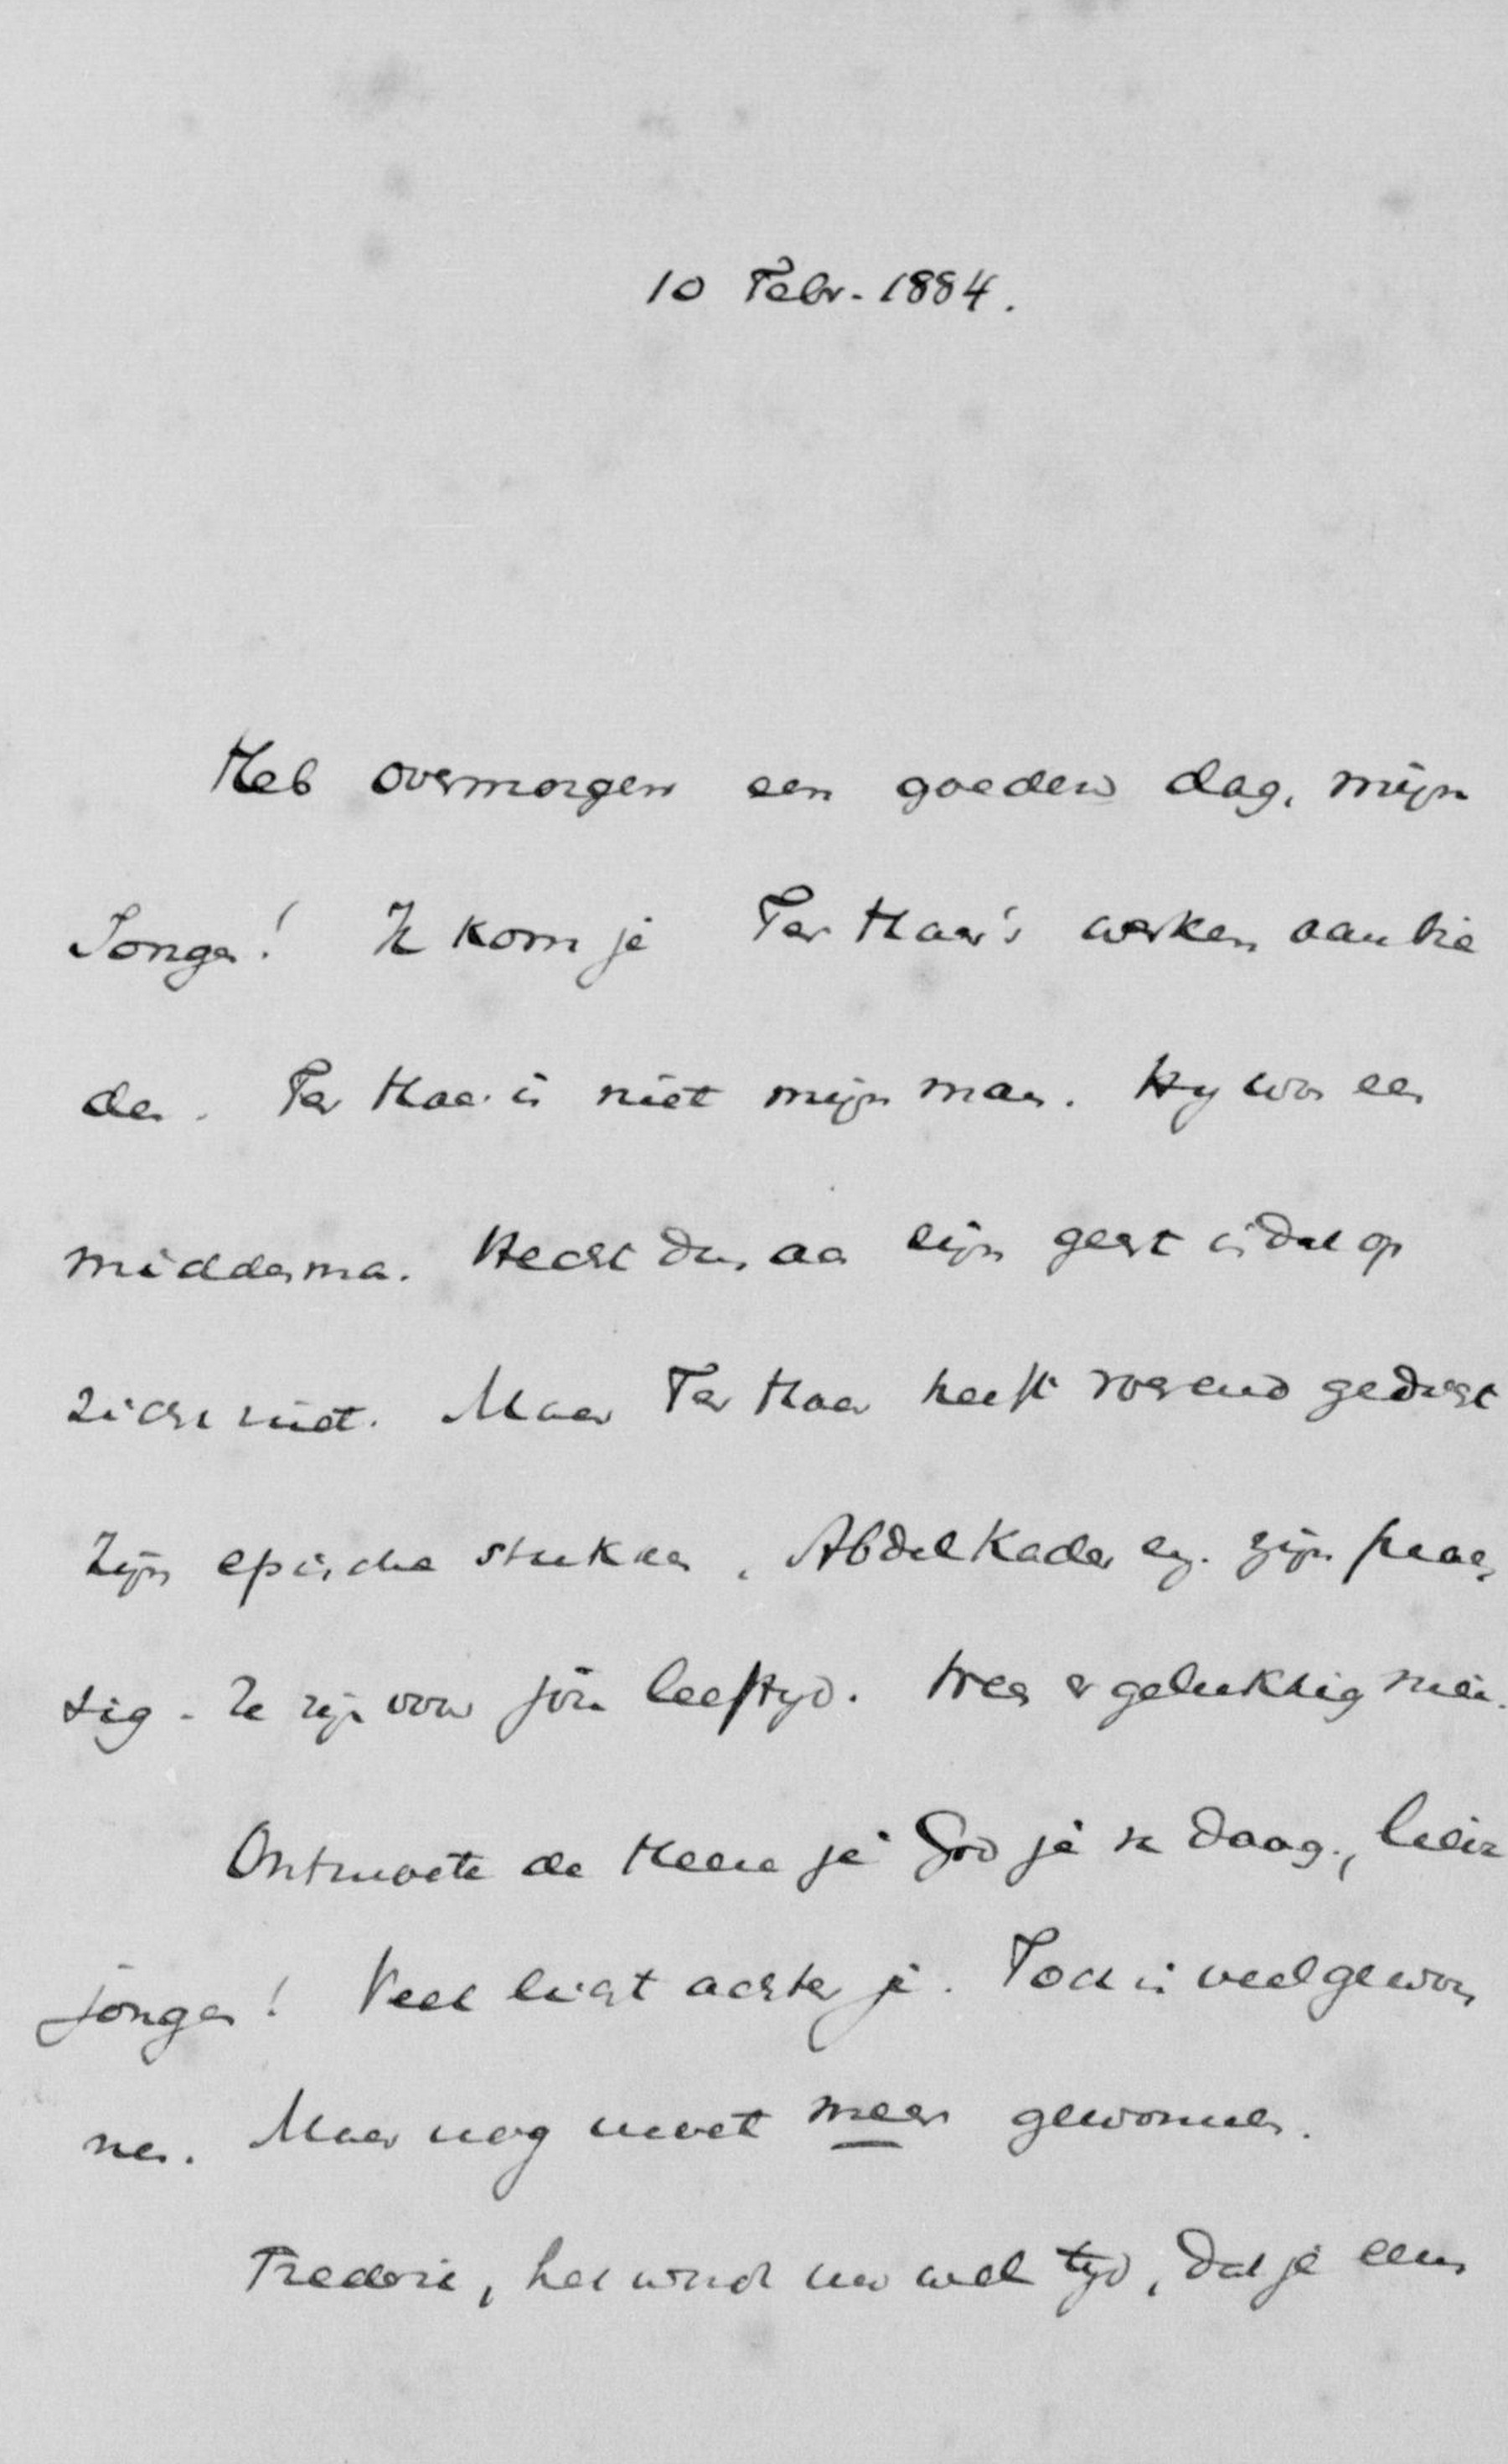 10 Febr. 1884.
Heb overmorgen een goeden dag, mijn
Jongen! Ik kom je Ter Haar's werken aanbie
den. Ter Haar is niet mijn man. Hy was een
middenman. Hecht dus aan zijn geest in dat op
zicht niet. Maar Ter Haar heeft roerend gedicht
Zijn epische stukken, Abdelkader eg. zijn prach
tig. Ze zijn voor jou leeftyd. Wees er gelukkig meê.
Ontmoete de Heere je God je te daag, lieve
jongen! Veel ligt achter je. Toch is veel gewon
nen. Maar nog moet meer gewonnen.
Frederic, het wordt nu wel tyd, dat je eens